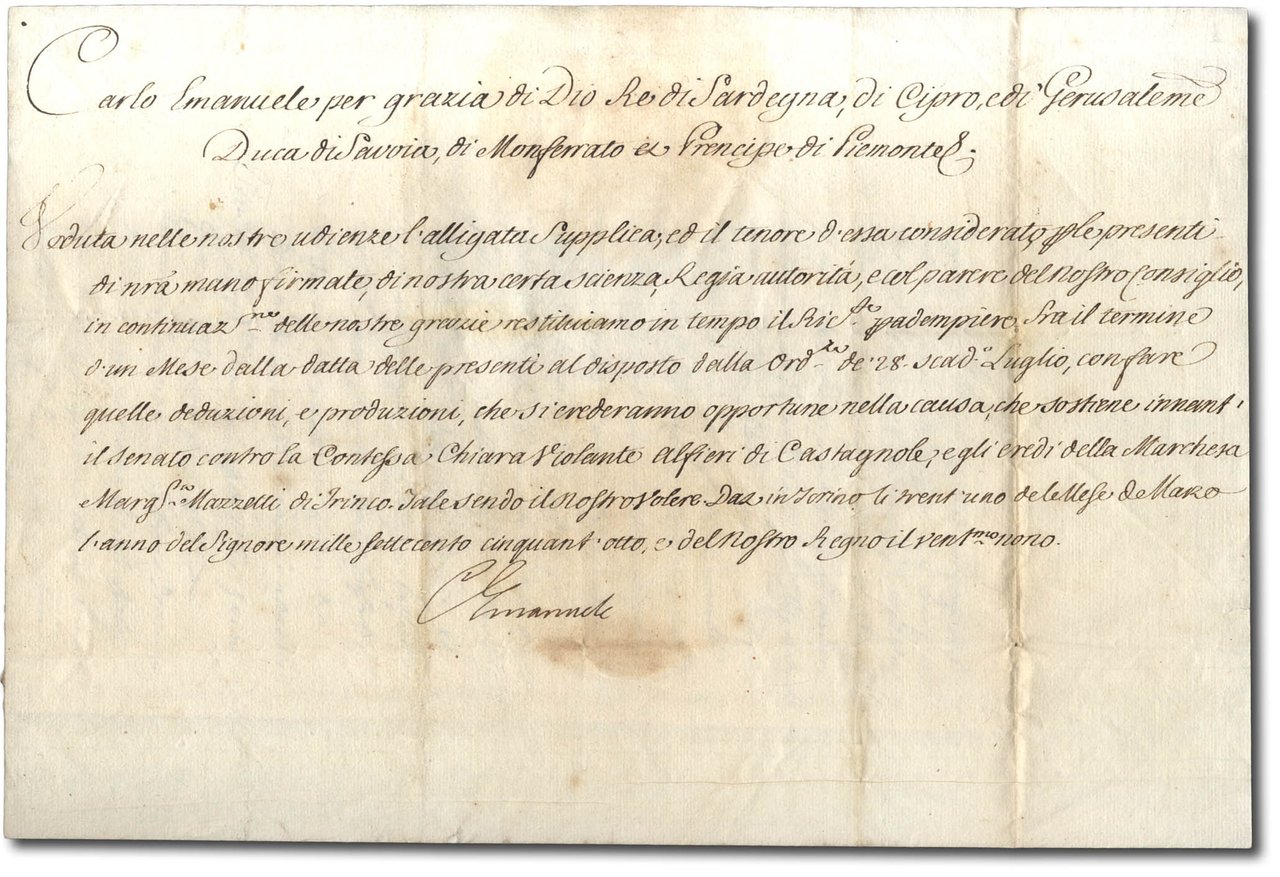 Carlo Emanuele per grazia di Dio Re di Sardegna, di Cipro, e di Gerusaleme
Duca di Savoia, di Monferrato et Prencipe di Piemonte &.
Veduta nelle nostre udienze l'alligata Supplica, ed il tenore d'essa considerato, p le presenti
di nrã mano firmate, di nostra certa scienza, Regia autorità, e col parere del Nostro Consiglio,
in continuaz.ne delle nostre grazie restituiamo in tempo il Ric.te p adempiere fra il termine
d'un Mese dalla datta delle presenti al disposto dalla Ord.za de' 28. scad.o Luglio, con fare
quelle deduzioni, e produzioni, che si crederanno opportune nella causa, che sostiene innant'
il Senato contro la Contessa Chiara Violante Alfieri di Castagnole, e gli eredi della Marchesa
Marg.ta Mazzetti di Frinco. Tale sendo il Nostro Volere. Dat in Torino li trent'uno del Mese de Marzo
l'anno del Signore mille settecento cinquant'otto, e del Nostro Regno il vent.mo nono.
C Emanuele